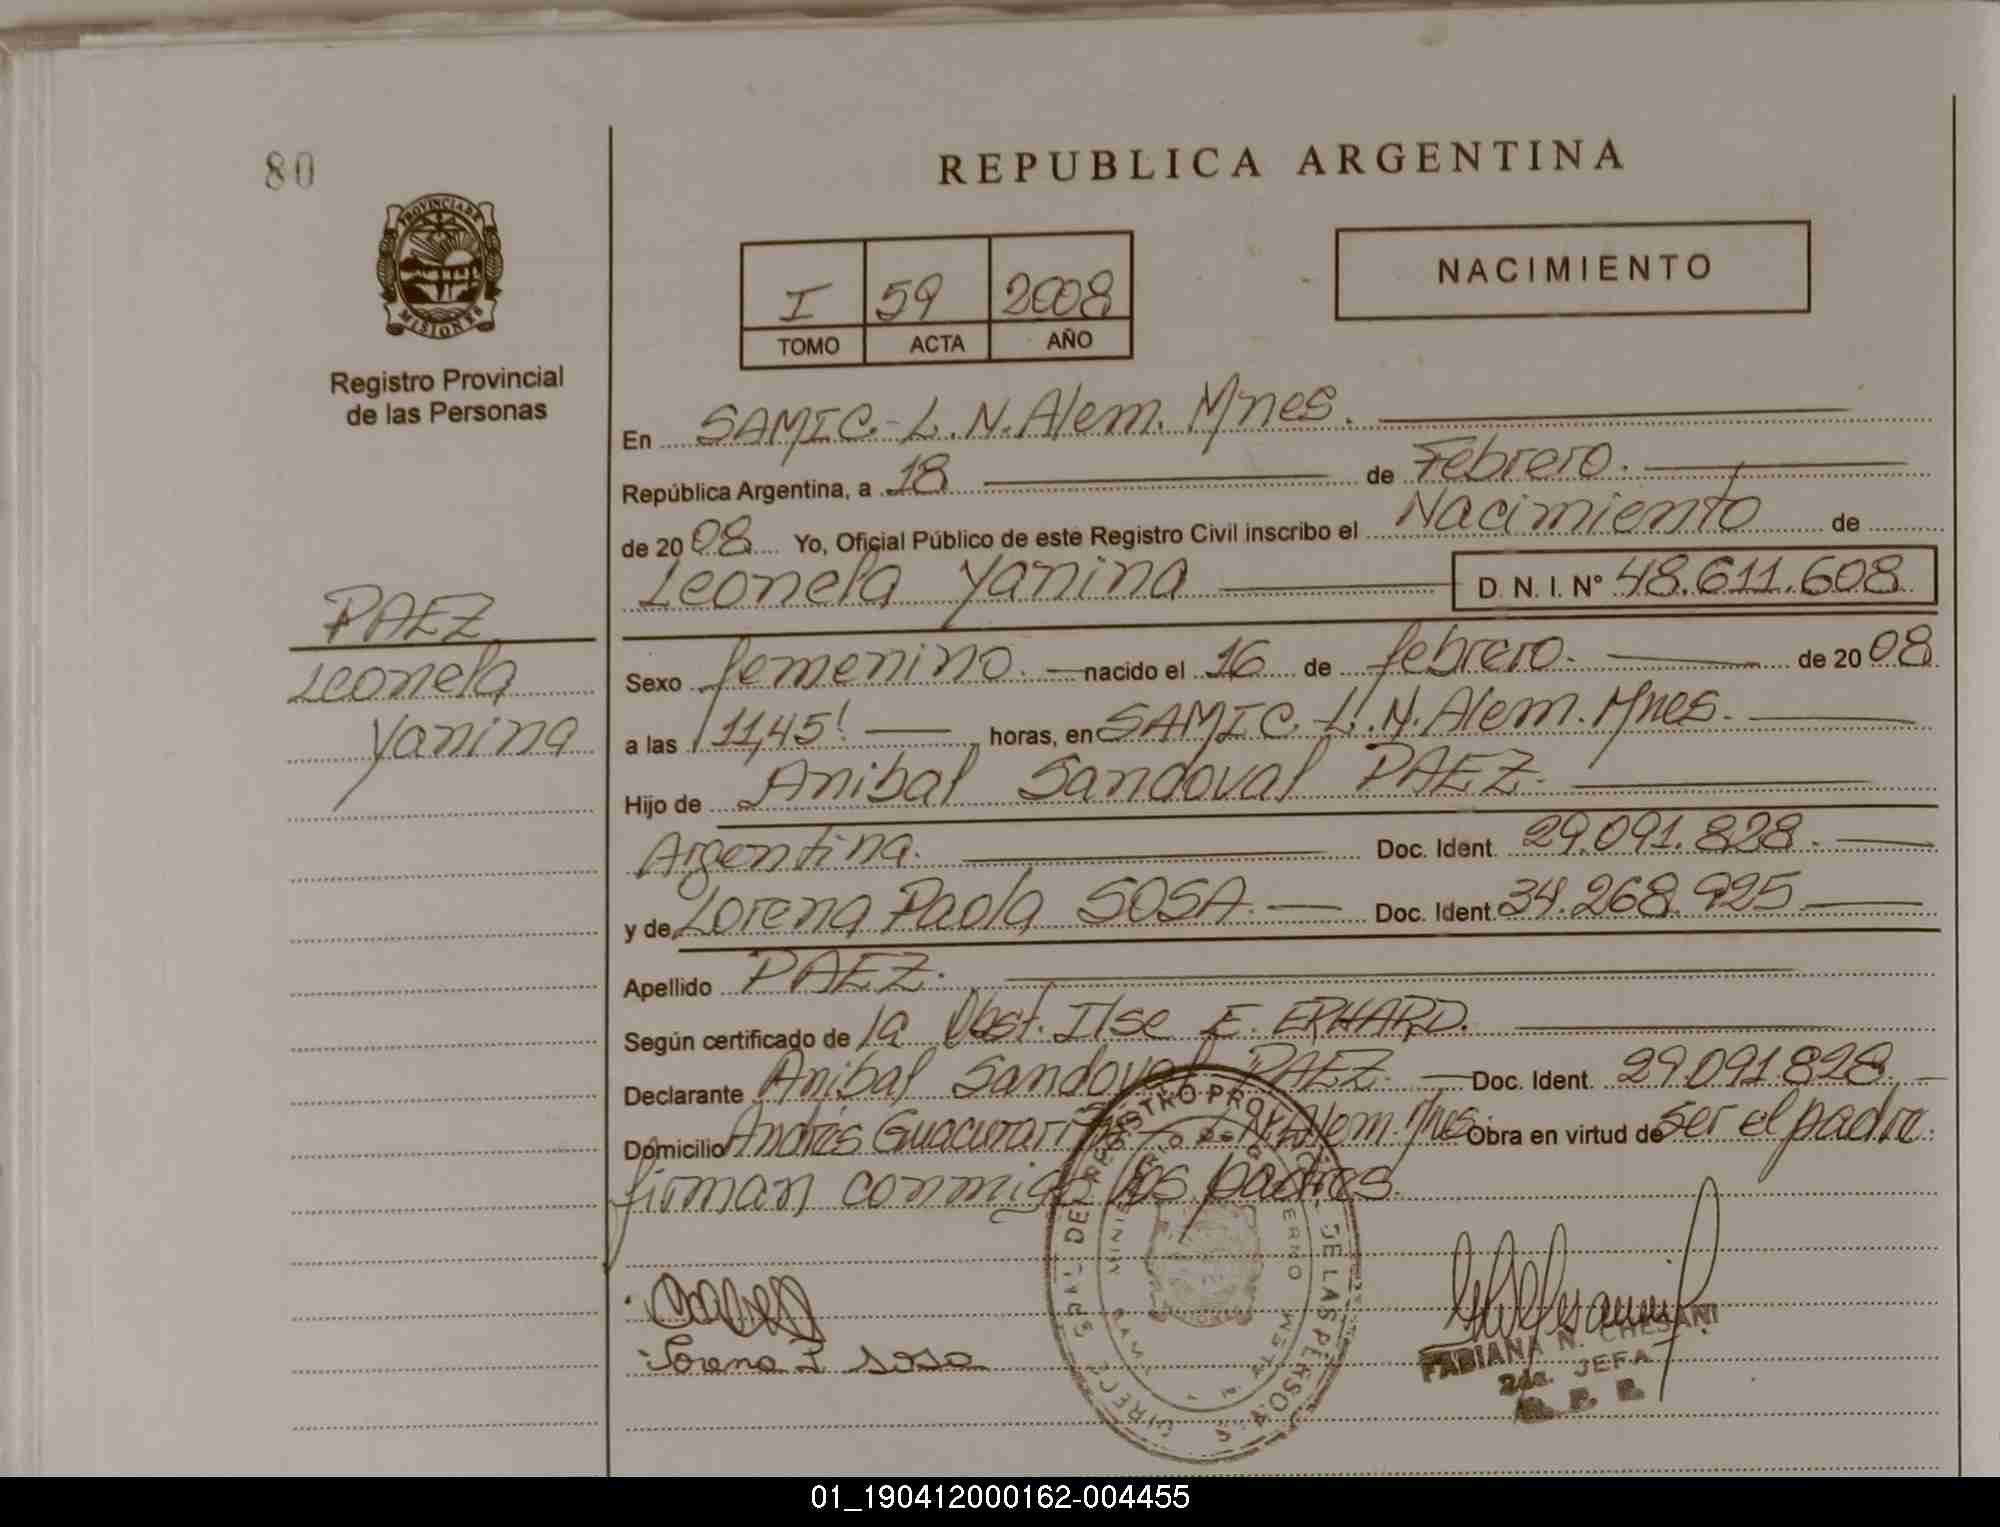 80
REPUBLICA ARGENTINA
PROVINCIA DE
MISIONES
Registro Provincial
de las Personas
NACIMIENTO
I 59 2008
TOMO ACTA AÑO
En SAMIC.-L.N.Alem. Mnes.
República Argentina, a 18 de Febrero.
de 2008 Yo, Oficial Público de este Registro Civil inscribo el Nacimiento de
Leonela Yanina D. N. I. N° 48.611.608
PAEZ
Leonela
Yanina
Sexo femenino. nacido el 16 de febrero. de 2008
a las 11,45! horas, en SAMIC. L.N. Alem. Mnes.
Hijo de Anibal Sandoval PAEZ.
Argentina. Doc. Ident. 29.091.828.
y de Lorena Paola SOSA. Doc. Ident. 34.268.925
Apellido PAEZ.
Según certificado de la Obst. Ilse E. ERHARD.
Declarante Anibal Sandoval PAEZ. Doc. Ident. 29091828.
Domicilio Andrés Guacurari N. Alem. Mnes. Obra en virtud de ser el padre.
firman conmigo los padres.
Lorena P sosa
DE REGISTRO PROVINCIAL DE LAS PERSONAS
FABIANA N. CHESANI
2da. JEFA
R. P. P.
01_190412000162-004455